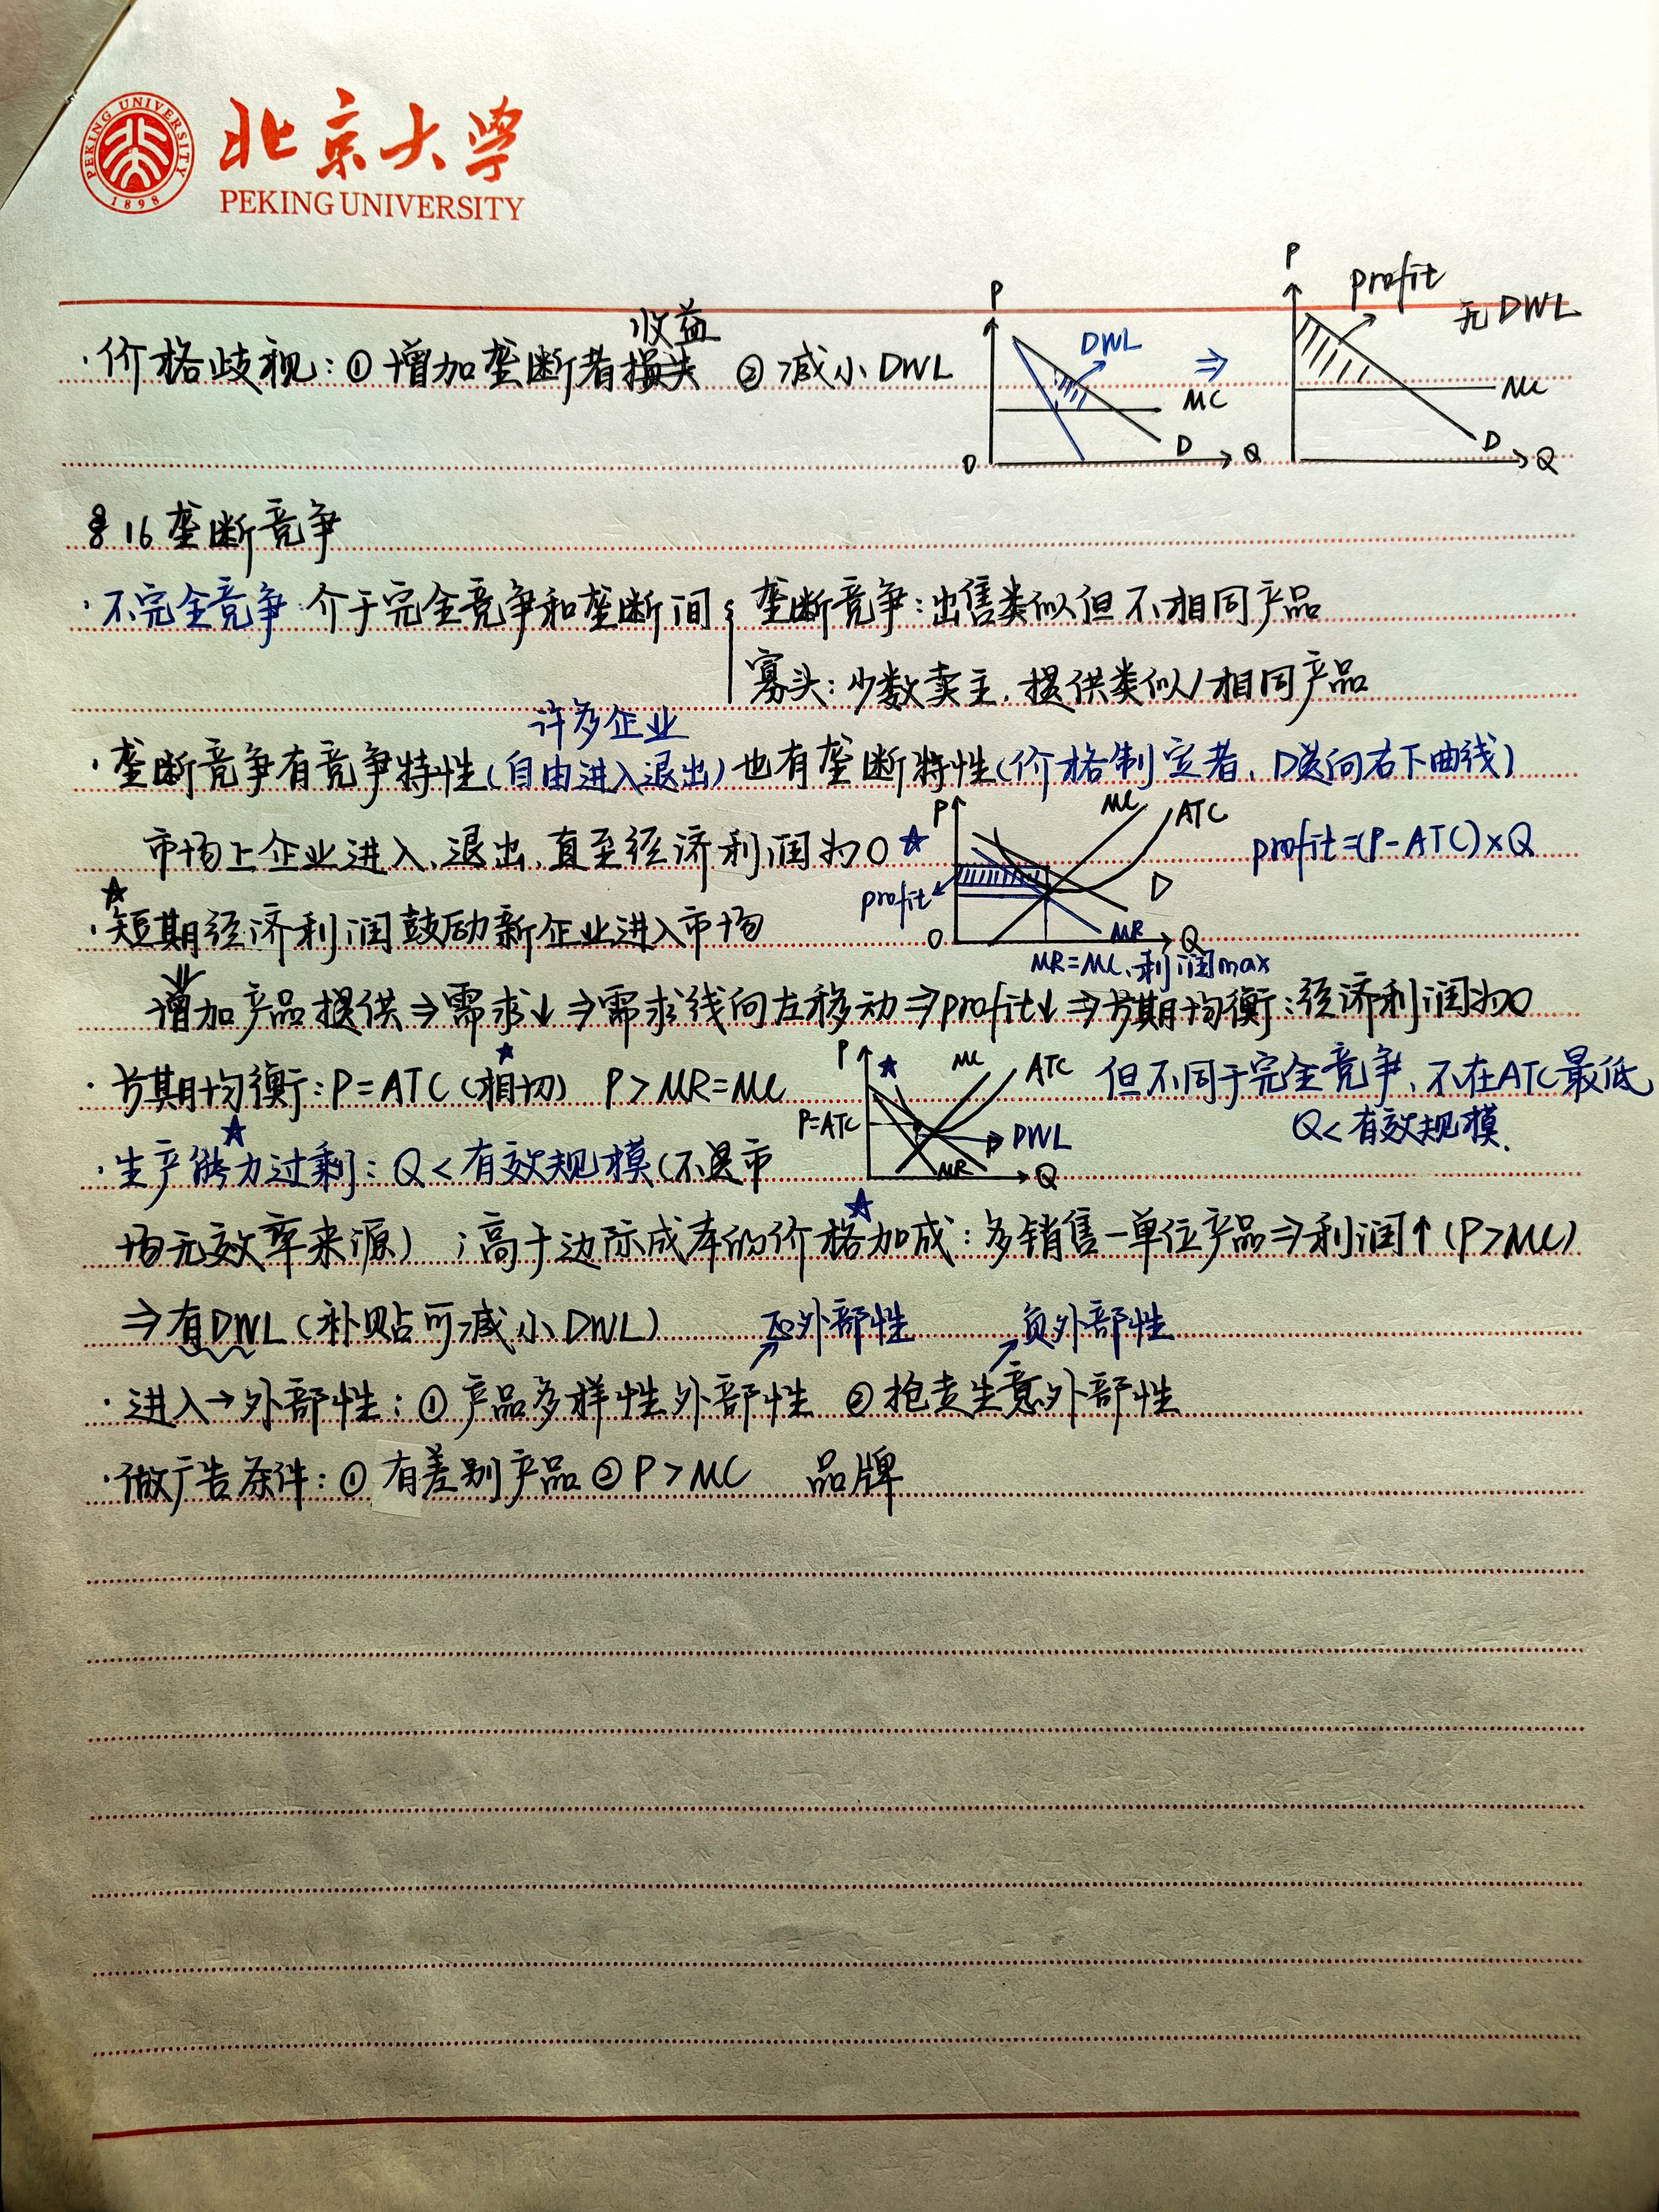 PEKING UNIVERSITY
1898
北京大学
PEKING UNIVERSITY
收益
·价格歧视:①增加垄断者损失 ②减小DWL
P
DWL
⇒
MC
D
O
Q
P
profit
无DWL
MC
D
Q
§16 垄断竞争
·不完全竞争:介于完全竞争和垄断间{垄断竞争:出售类似但不相同产品
寡头:少数卖主,提供类似/相同产品
许多企业
·垄断竞争有竞争特性(自由进入退出)也有垄断特性(价格制定者、D是向右下曲线)
市场上企业进入、退出,直至经济利润为0 ☆
P
MC
ATC
profit=(P-ATC)×Q
profit
D
O
MR
Q
MR=MC,利润max
☆
·短期经济利润鼓励新企业进入市场
⇓
增加产品提供⇒需求↓⇒需求线向左移动⇒profit↓⇒长期均衡:经济利润为0
·长期均衡:P=ATC(相切) P>MR=MC
☆
P
☆
MC
ATC
P=ATC
DWL
MR
Q
但不同于完全竞争,不在ATC最低
Q<有效规模.
☆
·生产能力过剩:Q<有效规模(不是市
☆
场无效率来源);高于边际成本的价格加成:多销售一单位产品⇒利润↑(P>MC)
⇒有DWL(补贴可减小DWL)
正外部性
负外部性
·进入→外部性:①产品多样性外部性 ②抢走生意外部性
·做广告条件:①有差别产品②P>MC 品牌